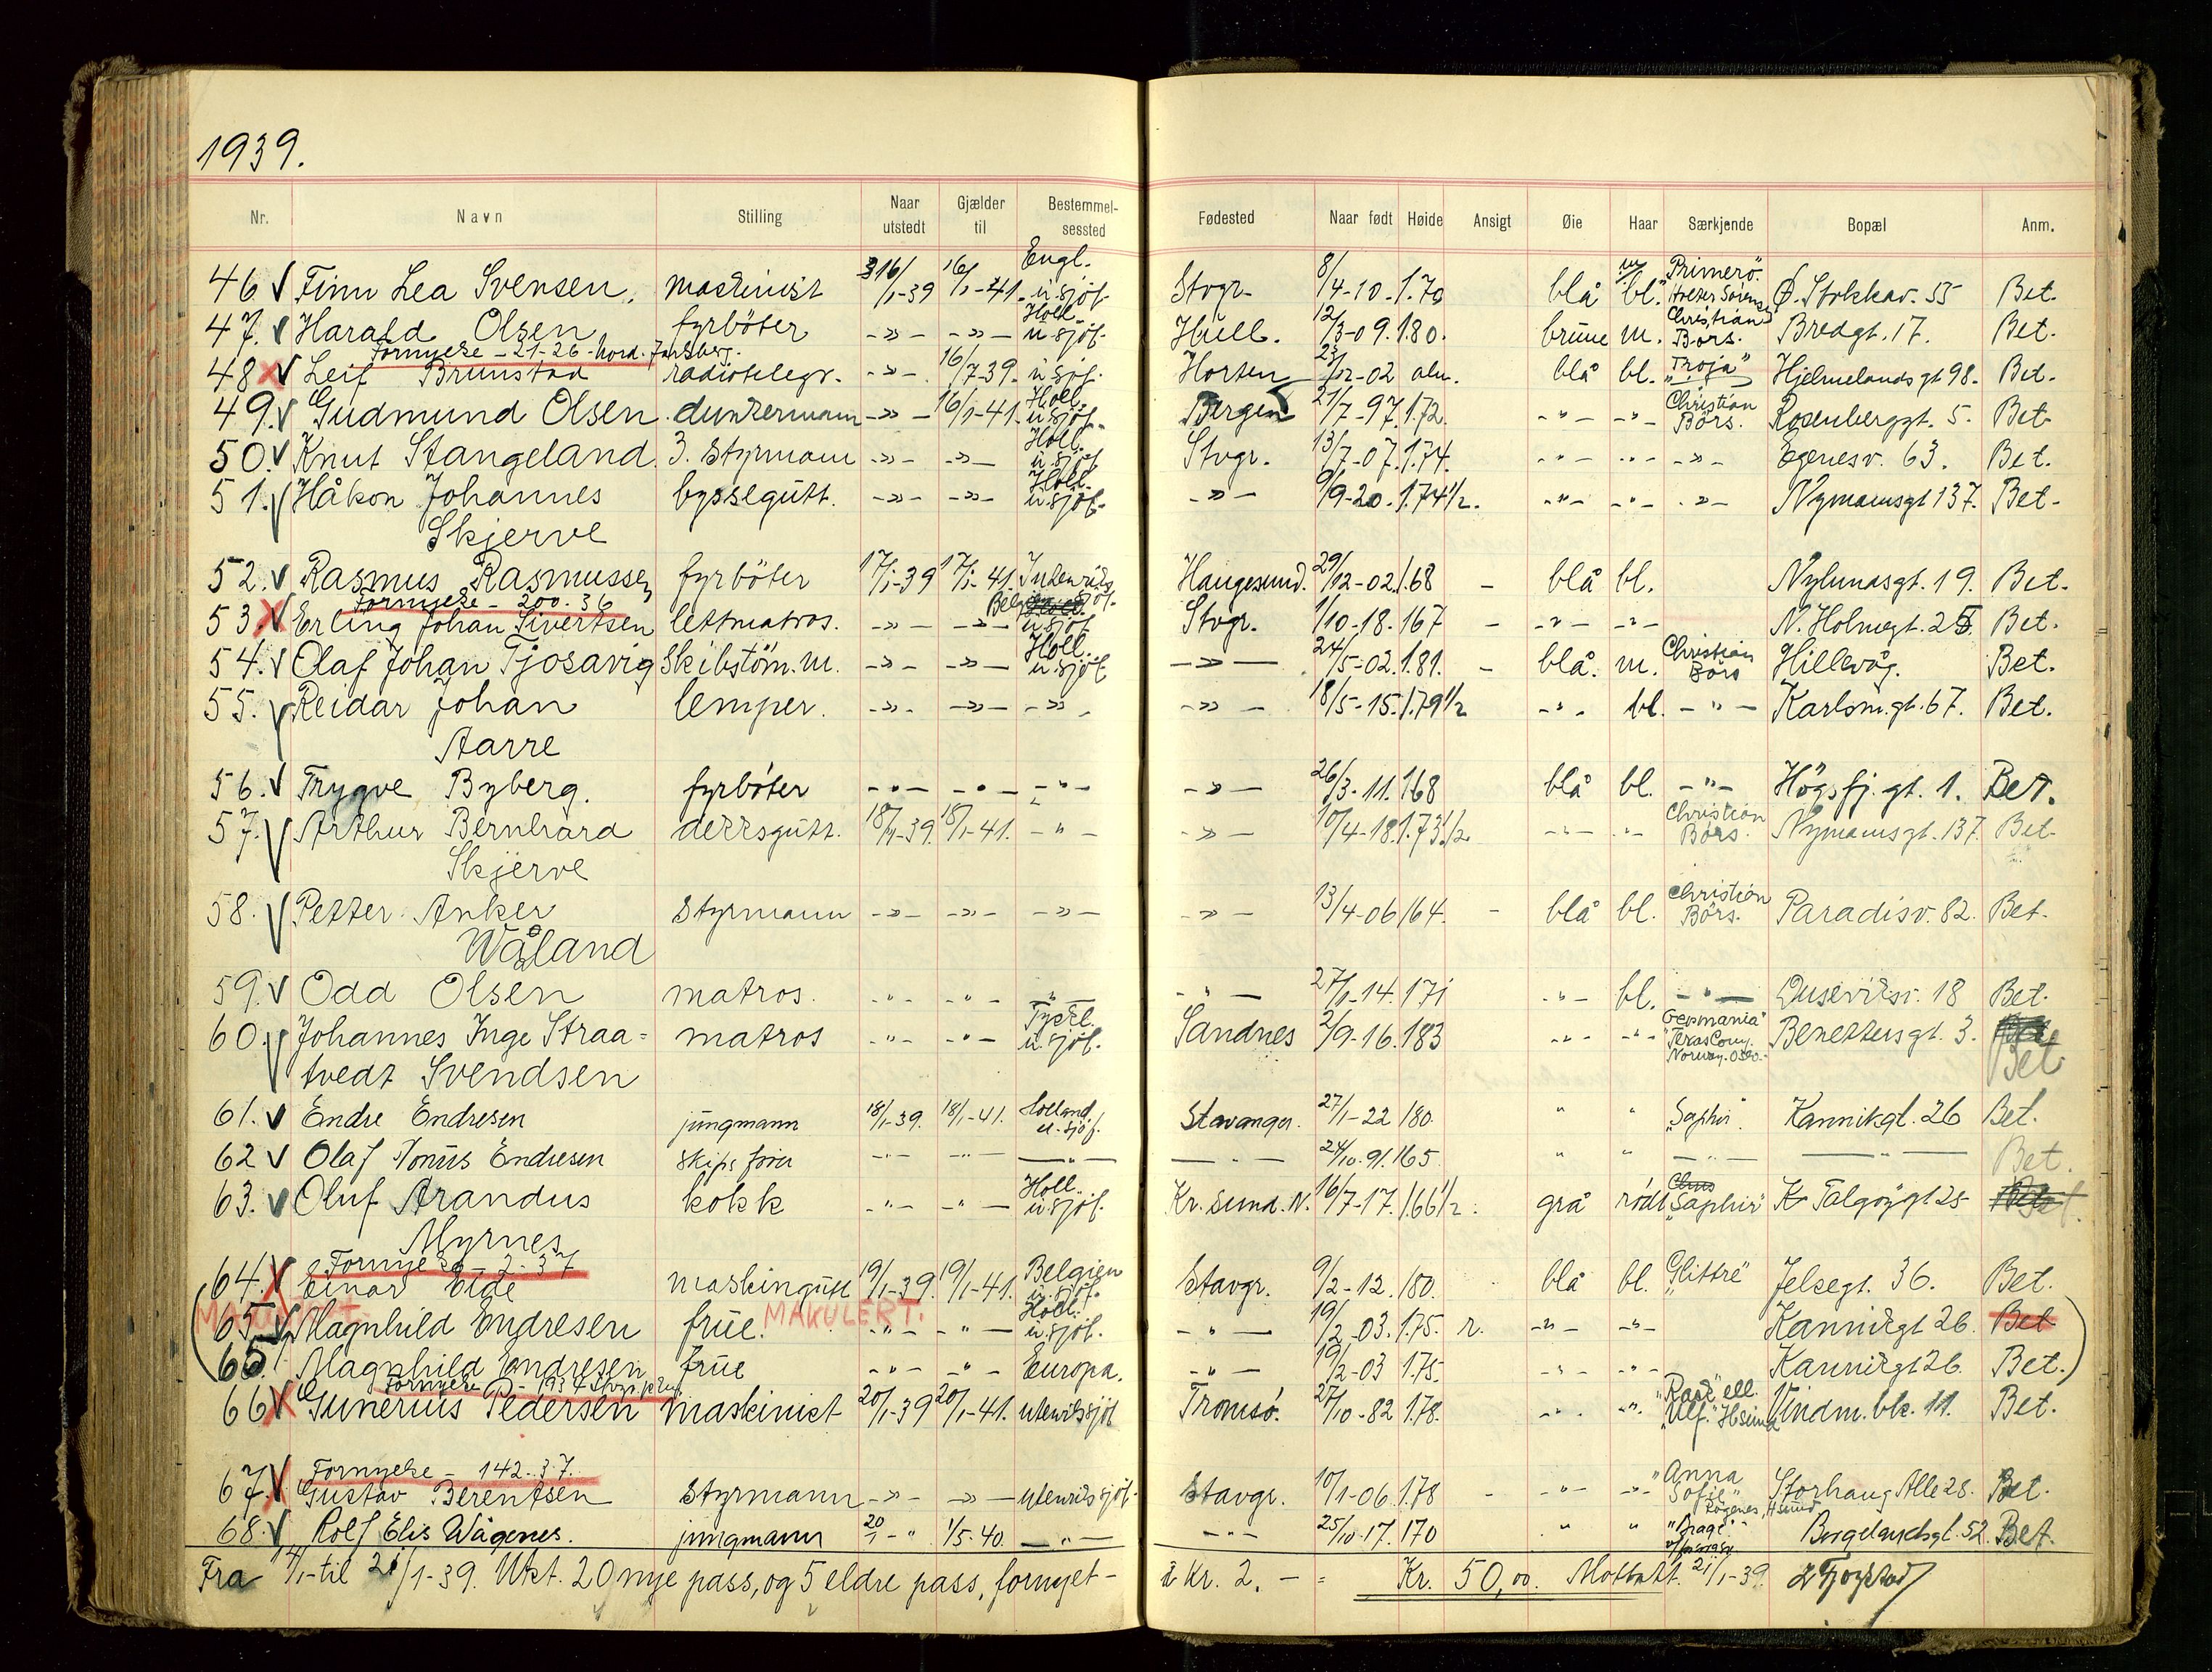 1939.
Nr. Navn Stilling Naar utstedt Gjælder til Bestemmelsessted Fødested Naar født Høide Ansigt Øie Haar Særkjende Bopæl Anm.
46. Finn Lea Svensen. maskinist 16/1-39 16/1-41. Engl. u. sjöf. Stvgr. 8/4-10. 1.70 blå bl. "Primerö" Ø. Stokkav. 55 Bet.
47. Harald Olsen fyrböter -»- -»- Holl. u. sjöf. Hull. 12/3-09. 1.80. brune m. Christian Börs. Bredgt. 17. Bet.
Fornyelse - 21-26 - Nord. Jarlsberg.
48 Leif Brunstad radiotelegr. -»- 16/7-39. u. sjöf. Horten 23/12-02 alm. blå bl. "Troja" Hjelmelandsgt 98. Bet.
49. Gudmund Olsen. dunkermann -»- 16/1-41. Holl. u. sjöf. Bergen 21/7-97. 1.72. -"- -"- Christian Börs. Rosenberggt. 5. Bet.
50. Knut Stangeland. 3. styrmann -»- -»- Holl. u. sjöf. Stvgr. 13/7-07. 1.74. -"- -"- -»- Egenesv. 63. Bet.
51. Håkon Johannes byssegutt. -»- -»- Holl. u. sjöf. -»- 9/9-20. 1.74½. -"- -"- -»- Nymannsgt 137. Bet.
Skjerve
52. Rasmus Rasmussen fyrböter 17/1-39 17/1-41. Intenriks sjöf. Haugesund. 29/12-02. 1.68 - blå bl. Nylundsgt. 19. Bet.
Fornyelse - 200-36
53. Erling Johan Sivertsen lettmatros. -»- -»- Belg. u. sjöf. Stvgr. 1/10-18. 167 - -"- -"- N. Holmegt. 25. Bet.
54. Olaf Johan Tjosavig Skibstöm.m. -»- -»- Holl. u. sjöf. -»- 24/5-02. 1.81. - blå. m. Christian Börs Hillevåg. Bet.
55. Reidar Johan lemper. -»- -»- -»- -»- 18/5-15. 1.79½ -"- bl. -"- Karlsm.gt. 67. Bet.
Aarre
56. Trygve Byberg. fyrböter -"- -"- -"- -»- 26/3-11. 168 blå bl. -"- Högsfj.gt. 1. Bet.
57. Arthur Bernhard dekksgutt. 18/1-39. 18/1-41. -"- -»- 10/4-18. 1.73½ -"- -"- Christian Börs. Nymannsgt. 137. Bet.
Skjerve
58. Petter Anker styrmann -»- -»- -»- -»- 13/4-06 164. - blå bl. Christian Börs. Paradisv. 82. Bet.
Wåland
59. Odd Olsen matros. -"- -"- -"- -"- 27/1-14. 171 -"- bl. -"- Dusevikv. 18 Bet.
60. Johannes Inge Straa= matros -"- -"- Tyskl. u. sjöf. Sandnes 2/9-16. 183 -"- -"- "Germania" Texas Comp. Norway. Oslo.- Benettersgt. 3. Bet
tvedt Svendsen
61. Endre Endresen jüngmann 18/1-39. 18/1-41. Holland u. sjöf. Stavanger. 27/1-22 180. " " "Saphir". Kannikgt. 26 Bet.
62 Olaf Jonüs Endresen skipsförer -"- -"- -"- -"- 24/10-91. 165. " " -"- -"- Bet.
63. Oluf Arandus kokk -"- -"- Holl. u. sjöf. Kr. sund. N. 16/7-17. 1.66½. grå rödt "Saphir" K Talgögt 25 Bet.
Myrnes
Fornyelse - 2-37
64. Einar Elge maskingutt 19/1-39. 19/1-41. Belgien u. sjöf. Stavgr. 9/2-12. 180. blå bl. "Glittre" Jelsegt. 36. Bet.
MAKULERT.
65 Magnhild Endresen früe. MAKULERT. -"- -"- Holl. u. sjöf. -"- 19/2-03. 1.75. r. -"- -"- Kannikgt 26. Bet
65. Magnhild Endresen früe -"- -"- Europa. -"- 19/2-03 1.75. -"- -"- Kannikgt 26. Bet.
Fornyelse - 1934
66 Gunerius Pedersen maskinist 20/1-39 20/1-41. utenrikssjöf Tromsö. 27/10-82 1.78. -"- -"- ell. "Ulf." Hsund Vindm.bk. 11. Bet.
Fornyelse - 142-37.
67. Gustav Berentsen styrmann -»- -»- utenrikssjöf. Stavgr. 10/1-06. 1.78 - -"- -"- "Anna Sofie" Hsund. Storhaug Alle 28. Bet.
68. Rolf Elis Wågenes. jungmann 20/1-" 1/5-40. -"- -"- 25/10-17. 170 " " "Brage" Bergelandsgt. 52. Bet.
Fra 14/1-til 21/1-39. Utst. 20 nye pass, og 5 eldre pass, fornyet- à Kr. 2. - = Kr. 50,00. Mottatt. 21/1-39.